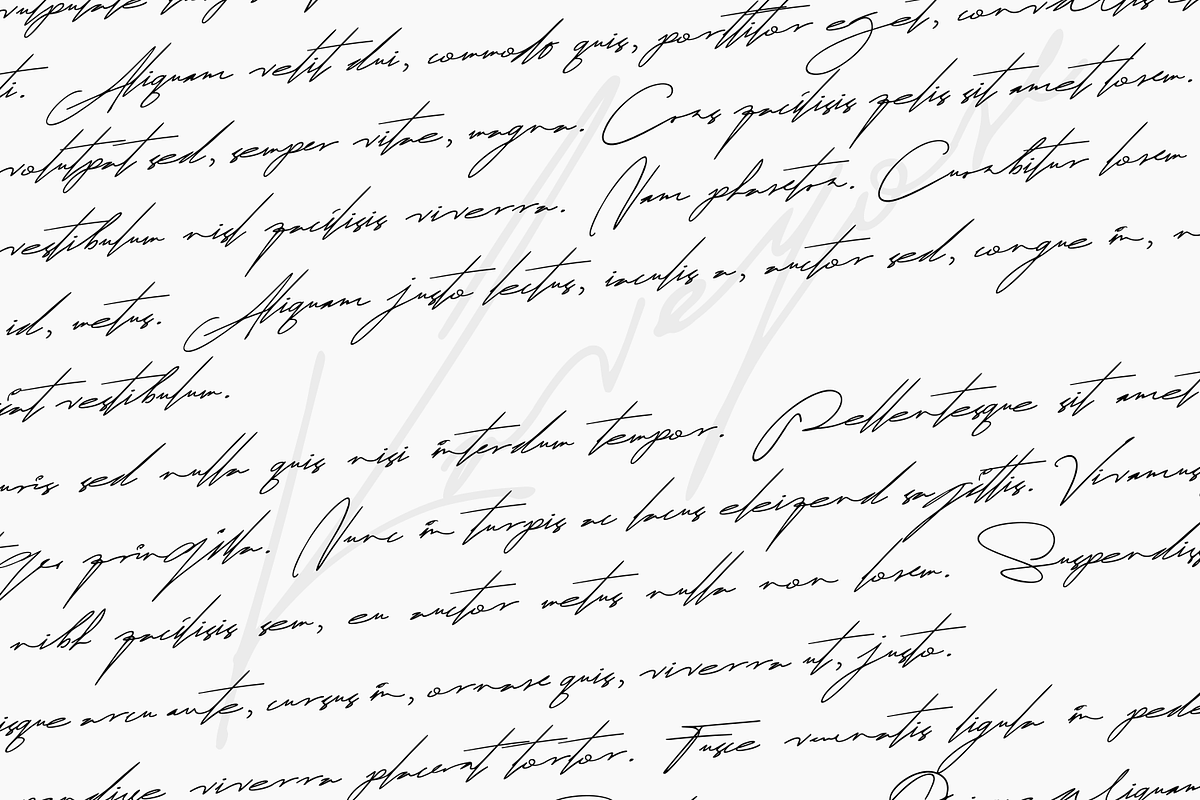 vulputate
ti. Aliquam velit dui, commodo quis, porttitor eget, convallis et
volutpat sed, semper vitae, magna. Cras facilisis felis sit amet lorem.
vestibulum nisl facilisis viverra. Nam pharetra. Curabitur lorem
id, metus. Aliquam justo lectus, iaculis a, auctor sed, congue in, n
vestibulum.
uris sed nulla quis nisi interdum tempor. Pellentesque sit amet
fringilla. Nunc in turpis ac lacus eleifend sagittis. Vivamus
nibh facilisis sem, eu auctor metus nulla non lorem. Suspendiss
isque arcu ante, cursus in, ornare quis, viverra ut, justo.
viverra placerat tortor. Fusce venenatis ligula in pede
Aliquam